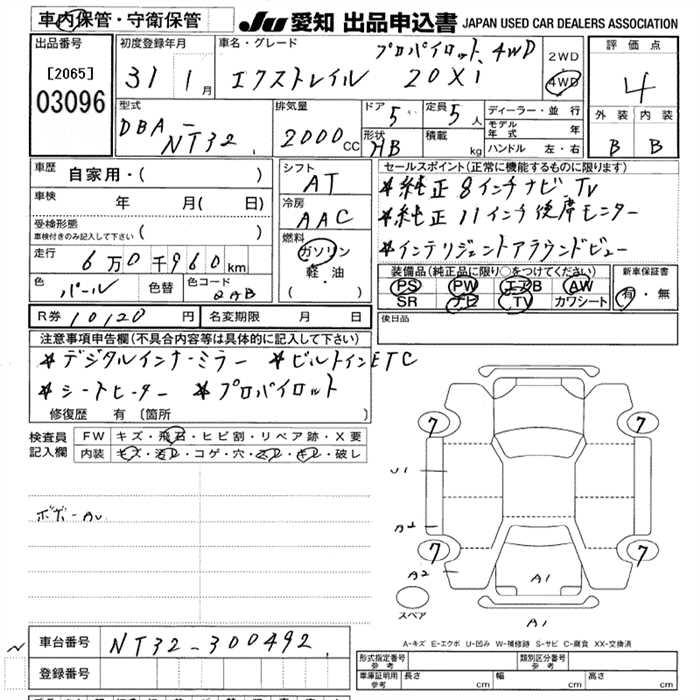 車内保管・守衛保管
JU 愛知 出品申込書 JAPAN USED CAR DEALERS ASSOCIATION
出品番号
[2065]
03096
初度登録年月
31 1月
車名・グレード
プロパイロット 4WD
エクストレイル 20Xi
2WD
4WD
評価点
4
外装 内装
B B
型式
DBA-
NT32
排気量
2000cc
ドア 5
形状 HB
定員 5人
積載 kg
ディーラー・並行
モデル年式 年
ハンドル 左・右
車歴 自家用・( )
車検 年 月( 日)
受検形態
車検付きのみ記入して下さい ( )
走行 6万0千960km
色 パール 色替 色コード QAB
R券 10120円 名変期限 月 日
シフト
AT
冷房
AAC
燃料
ガソリン
軽・油
( ・ )
セールスポイント(正常に機能するものに限ります)
*純正8インチナビ、TV
*純正11インチ後席モニター
*インテリジェントアラウンドビュー
装備品(純正品に限り○をつけてください)
PS PW エアB AW
SR ナビ TV カワシート
新車保証書
有・無
後日品
注意事項申告欄(不具合内容等は具体的に記入して下さい)
*デジタルインナーミラー *ビルトインETC
*シートヒーター *プロパイロット
修復歴 有 〔箇所 〕
検査員記入欄
FW キズ・飛石・ヒビ割・リペア跡・X要
内装 キズ・汚レ・コゲ・穴・スレ・キレ・破レ
7 7
U1
A2
7 7
A2
A1
スペア
A1
A-キズ E-エクボ U-凹み W-補修跡 S-サビ C-腐食 XX-交換済
車台番号 NT32-300492
登録番号
形式指定番号 参考
類別区分番号 参考
車庫証明用 参考 長さ cm 幅 cm 高さ cm